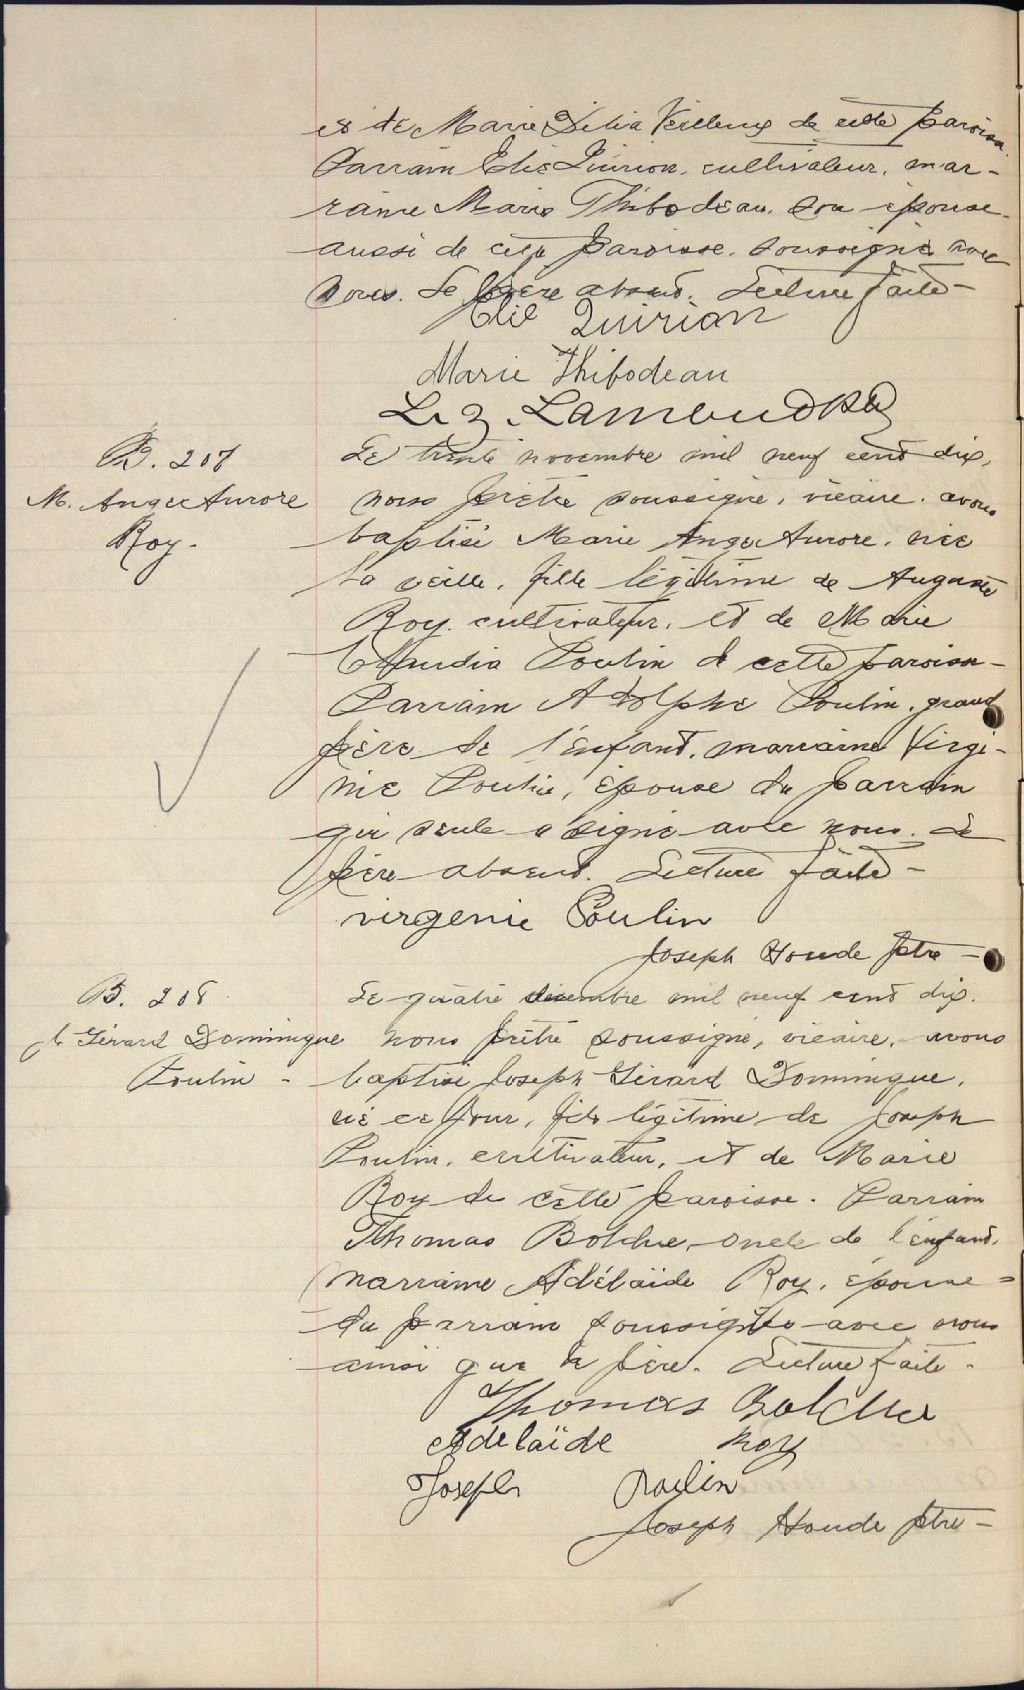 et de Marie Délia Veilleux de cette paroisse.
Parrain Elie Quirion, cultivateur, mar-
raine Marie Thibodeau, son épouse
aussi de cette paroisse, soussignés avec
nous. Le père absent. Lecture faite -
Elie Quirion
Marie Thibodeau
B. 207
M. Ange Aurore
Roy -
Le trente novembre mil neuf cent dix,
nous prêtre soussigné, vicaire, avons
baptisé Marie Ange Aurore, née
la veille, fille légitime de Auguste
Roy, cultivateur, et de Marie
Claudia Poulin de cette paroisse -
Parrain Adolphe Poulin, grand
père de l'enfant, marraine Virgi-
nie Poulin, épouse du parrain
qui seule a signé avec nous. Le
père absent. Lecture faite -
virgenie Poulin
Joseph Houde ptre -
B. 208
J. Gérard Dominique
Poulin -
Le quatre décembre mil neuf cent dix,
nous prêtre soussigné, vicaire, avons
baptisé Joseph Gérard Dominique,
né ce jour, fils légitime de Joseph
Poulin, cultivateur, et de Marie
Roy de cette paroisse. Parrain
Thomas Bolduc, oncle de l'enfant,
marraine Adélaïde Roy, épouse
du parrain soussignés avec nous
ainsi que le père. Lecture faite -
Thomas Bolduc
Adelaïde Roy
Joseph Poulin
Joseph Houde ptre -